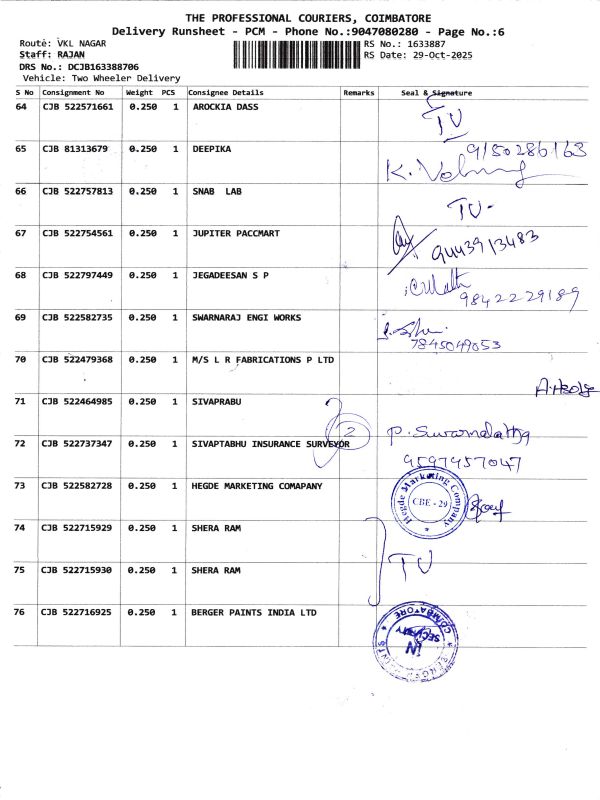 THE PROFESSIONAL COURIERS, COIMBATORE
Delivery Runsheet - PCM - Phone No.:9047080280 - Page No.:6
Route: VKL NAGAR
RS No.: 1633887
Staff: RAJAN
RS Date: 29-Oct-2025
DRS No.: DCJB163388706
Vehicle: Two Wheeler Delivery
S No Consignment No Weight PCS Consignee Details Remarks Seal & Signature
64 CJB 522571661 0.250 1 AROCKIA DASS TU
65 CJB 81313679 0.250 1 DEEPIKA 9150286163
66 CJB 522757813 0.250 1 SNAB LAB TU-
67 CJB 522754561 0.250 1 JUPITER PACCMART 9443913483
68 CJB 522797449 0.250 1 JEGADEESAN S P 9842229189
69 CJB 522582735 0.250 1 SWARNARAJ ENGI WORKS 7845049053
70 CJB 522479368 0.250 1 M/S L R FABRICATIONS P LTD
71 CJB 522464985 0.250 1 SIVAPRABU 2 P. Suvarnalatha
72 CJB 522737347 0.250 1 SIVAPTABHU INSURANCE SURVEYOR 9597957047
73 CJB 522582728 0.250 1 HEGDE MARKETING COMAPANY Hegde Marketing Company CBE - 29
74 CJB 522715929 0.250 1 SHERA RAM
TU
75 CJB 522715930 0.250 1 SHERA RAM
76 CJB 522716925 0.250 1 BERGER PAINTS INDIA LTD COIMBATORE SECURITY IN